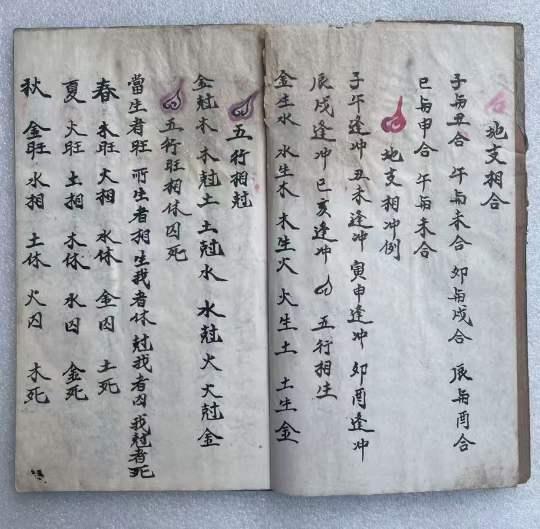 地支相合
子与丑合 午与未合 卯与戌合 辰与酉合
巳与申合 午与未合
地支相冲例
子午逢冲 丑未逢冲 寅申逢冲 卯酉逢冲
辰戌逢冲 巳亥逢冲 五行相生
金生水 水生木 木生火 火生土 土生金
五行相尅
金尅木 木尅土 土尅水 水尅火 火尅金
五行旺相休囚死
當生者旺 所生者相生我者休 尅我者囚 我尅者死
春 木旺 火相 水休 金囚 土死
夏 火旺 土相 木休 水囚 金死
秋 金旺 水相 土休 火囚 木死